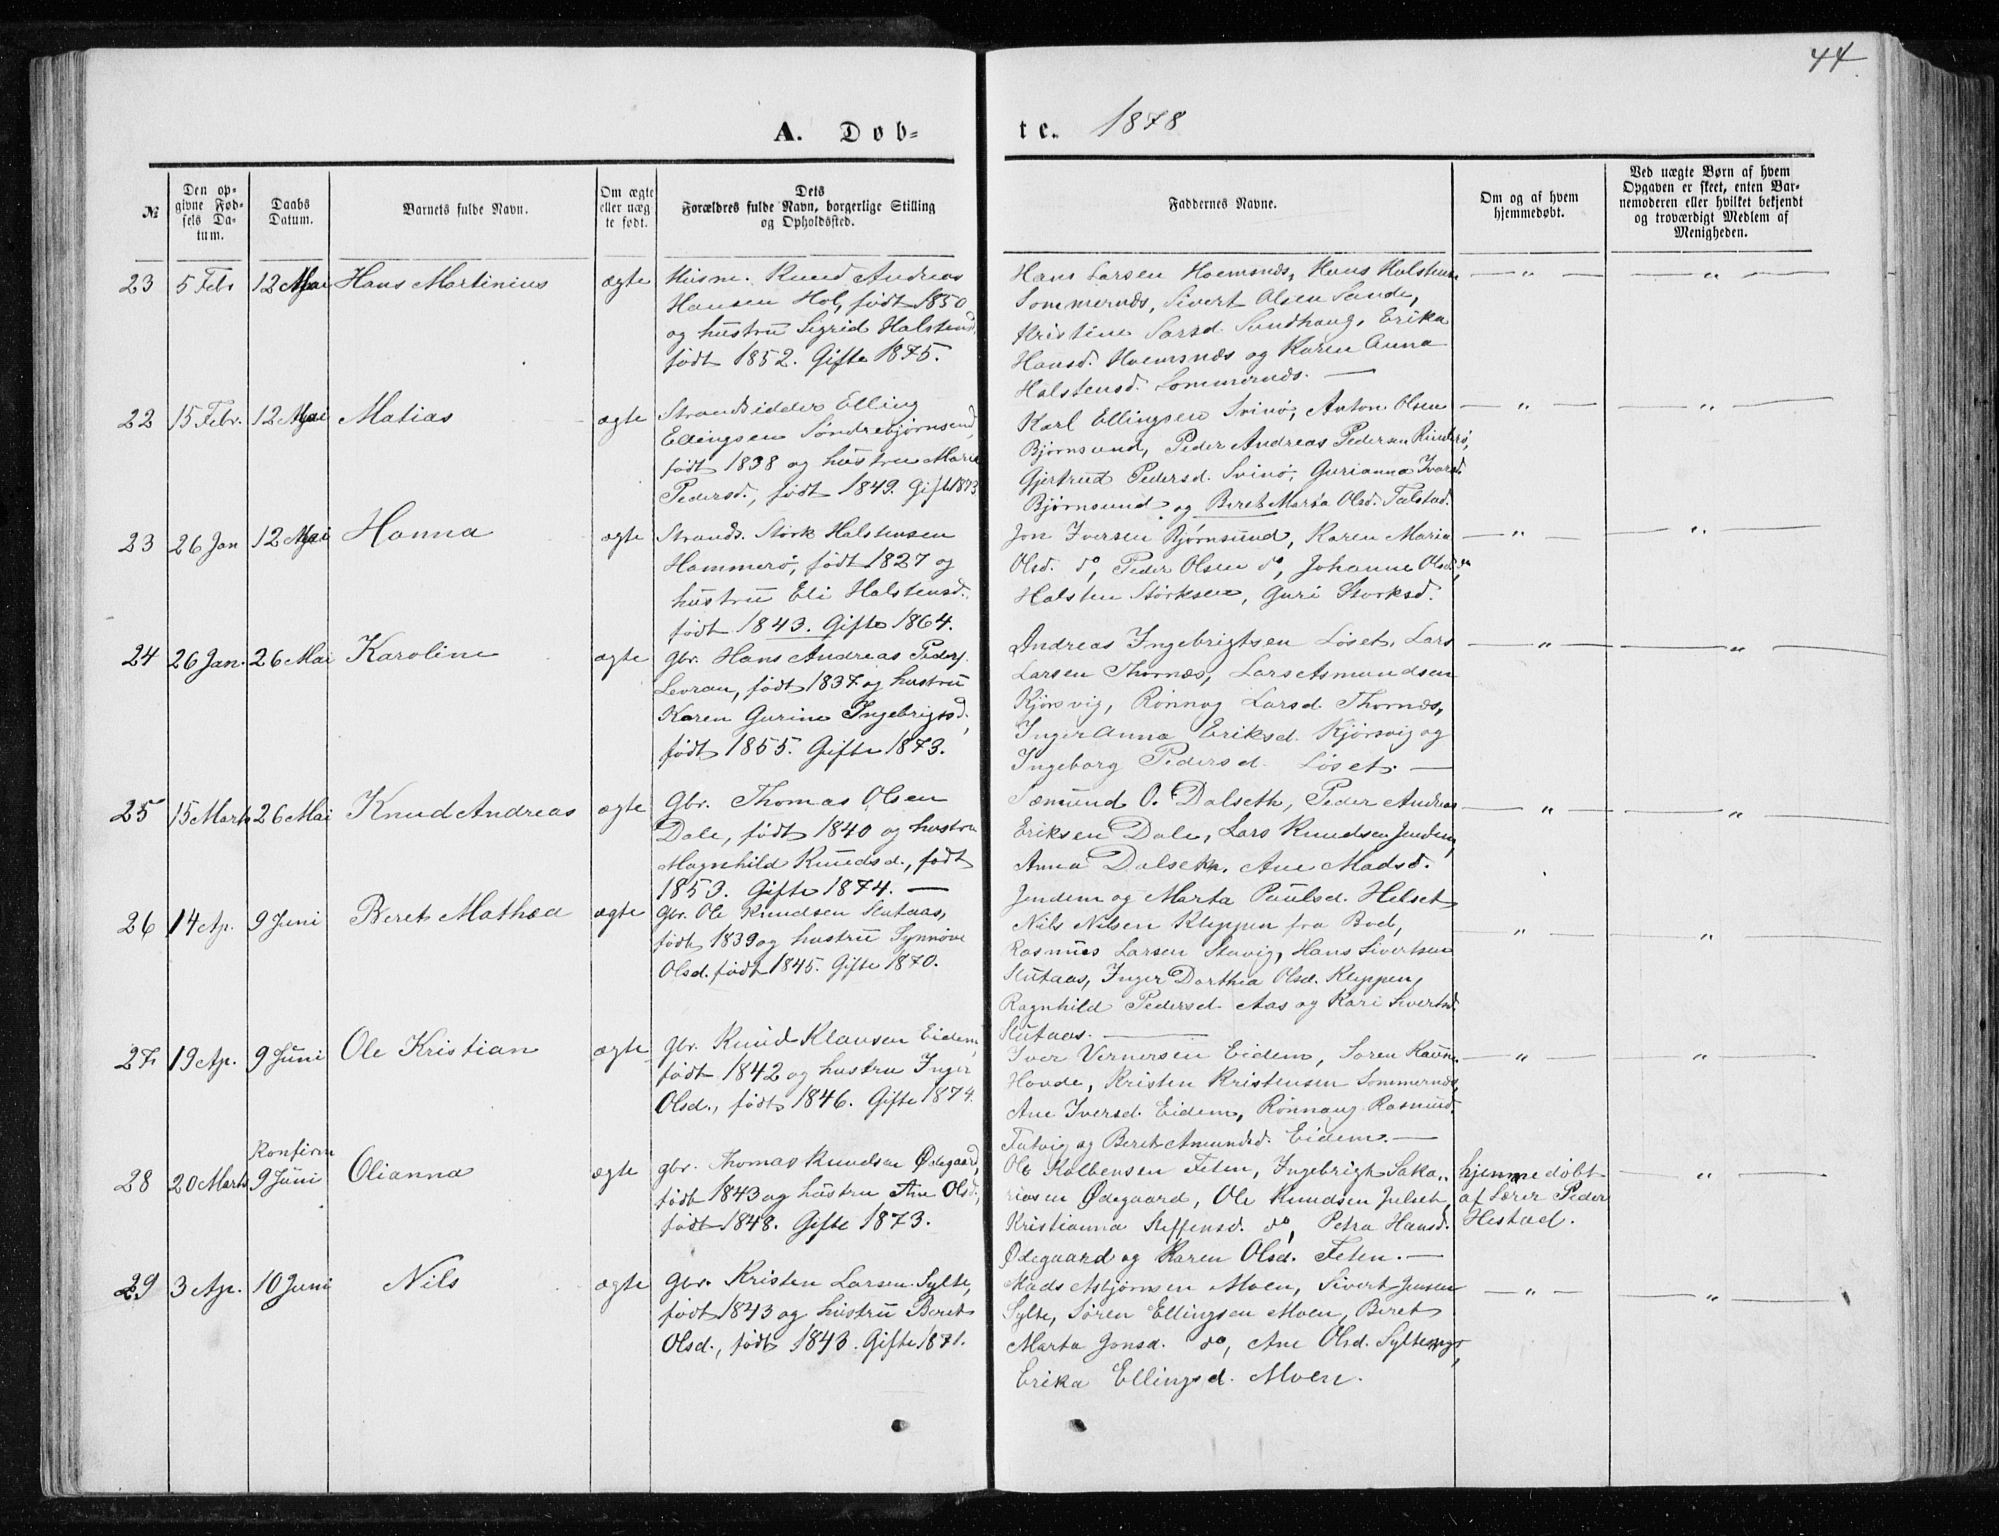 44.
A. Døb-
te. 1878
№
Den op-
givne Fød-
sels Da-
tum.
Daabs
Datum.
Barnets fulde Navn.
Om ægte
eller uæg
te født.
Dets
Forældres fulde Navn, borgerlige Stilling
og Opholdssted.
Faddernes Navne.
Om og af hvem
hjemmedøbt.
Ved uægte Børn af hvem
Opgaven er skeet, enten Bar-
nemoderen eller hvilket bekjendt
og troværdigt Medlem af
Menigheden.
23 5 Feb. 12 Mai Hans Martinius ægte
Husm. Knud Andreas
Hansen Hol, født 1850
og hustru Sigrid Halstensd.
født 1852. Gifte 1875.
Hans Larsen Hoemsnæs, Hans Halstens.
Sommernæs, Sivert Olsen Sande,
Kristine Larsd. Sundhaug, Erika
Hansd. Hoemsnæs og Karen Anna
Halstensd. Sommernæs. —
— " — — " —
22 15 Febr. 12 Mai Matias ægte
Strandsidder Elling
Ellingsen Søndrebjørnsund,
født 1838 og hustru Marit
Pedersd., født 1849. Gifte 1873
Karl Ellingsen Svinø, Anton Olsen
Bjørnsund, Peder Andreas Pedersen Rinderø,
Gjertrud Pedersd. Svinø, Gurianna Ivarsd.
Bjørnsund og Beret Marta Olsd. Talstad.
— " — — " —
23 26 Jan 12 Mai Hanna ægte
Strands. Størk Halstensen
Hammerø, født 1827 og
hustru Eli Halstensd.
født 1843. Gifte 1864.
Jon Iversen Bjørnsund, Karen Maria
Olsd. do, Peder Olsen do, Johanne Olsd. do,
Halsten Størksen, Guri Størksd.
— " — — " —
24 26 Jan. 26 Mai Karoline ægte
gbr. Hans Andreas Peders.
Levran, født 1837 og hustru
Karen Gurine Ingebrigtsd.,
født 1855. Gifte 1873.
Andreas Ingebrigtsen Løset, Lars
Larsen Thornæs, Lars Asmundsen
Kjørsvig, Rønnog Larsd. Thornæs,
Inger Anna Eriksd. Kjørsvig og
Ingeborg Pedersd. Løset. —
— " — — " —
25 15 Marts 26 Mai Knud Andreas ægte
Gbr. Thomas Olsen
Dale, født 1840 og hustru
Magnhild Knudsd., født
1853. Gifte 1874. —
Sæmund O. Dalseth, Peder Andreas
Eriksen Dale, Lars Knudsen Jendem,
Anna Dalseth, Ane Madsd.
Jendem og Marta Paulsd. Helset
— " — — " —
26 14 Ap. 9 Juni Beret Mathea ægte
gbr. Ole Knudsen Slutaas,
født 1839 og hustru Synnøve
Olsd. født 1845. Gifte 1870.
Nils Nilsen Kleppen fra Bod,
Rasmus Larsen Stavig, Hans Sivertsen
Slutaas, Inger Dorthea Olsd. Kleppen,
Ragnhild Pedersd. Aas og Kari Sivertsd.
Slutaas. —
— " — — " —
27 19 Ap. 9 Juni Ole Kristian ægte
gbr. Knud Klausen Eidem,
født 1842 og hustru Inger
Olsd., født 1846. Gifte 1874.
Iver Vernersen Eidem, Søren
Hovde, Kristen Kristensen Sommernæs,
Ane Iversd. Eidem, Rønnaug Rasmusd.
Talvig og Beret Amundsd. Eidem. —
— " — — " —
28 20 Marts Konfirm 9 Juni Olianna ægte
gbr. Thomas Knudsen Ødegaard,
født 1843 og hustru Ane Olsd.,
født 1848. Gifte 1873.
Ole Kolbensen Feten, Ingebrigt Saka,,
riasen Ødegaard, Ole Knudsen Julset,
Kristianna Steffensd. do, Petra Hansd.
Ødegaard og Karen Olsd. Feten. —
hjemmedøbt
af Lærer Peder
Hestad.
— " —
29 3 Ap. 10 Juni Nils ægte
gbr. Kristen Larsen Sylte,
født 1843 og hustru Beret
Olsd., født 1843. Gifte 1871.
Mads Asbjørnsen Moen, Sivert Jensen
Sylte, Søren Ellingsen Moen, Beret
Marta Jonsd. do, Ane Olsd. Sylte og
Erika Ellingsd. Moen.
— " — — " —